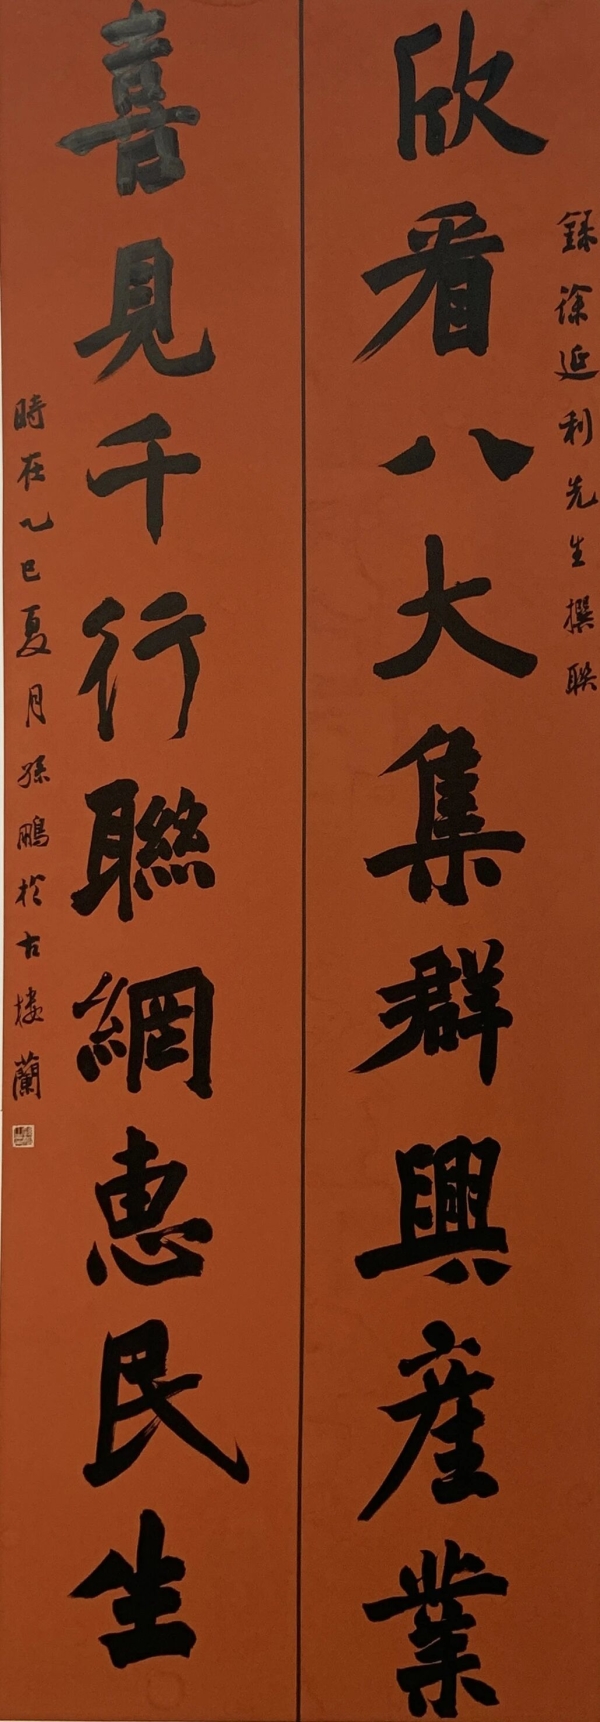 錄徐延利先生撰联
欣看八大集群興產業
喜見千行聯網惠民生
時在乙巳夏月孫鵬於古楼蘭